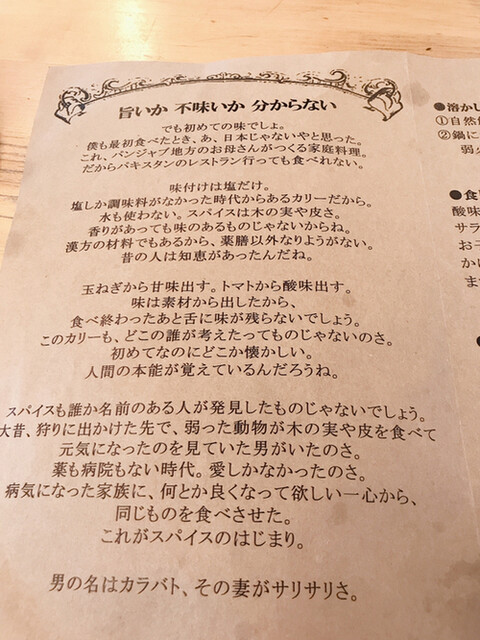 旨いか 不味いか 分からない
でも初めての味でしょ。
僕も最初食べたとき、あ、日本じゃないやと思った。
これ、パンジャブ地方のお母さんがつくる家庭料理。
だからパキスタンのレストラン行っても食べれない。
味付けは塩だけ。
塩しか調味料がなかった時代からあるカリーだから。
水も使わない。スパイスは木の実や皮さ。
香りがあっても味のあるものじゃないからね。
漢方の材料でもあるから、薬膳以外なりようがない。
昔の人は知恵があったんだね。
玉ねぎから甘味出す。トマトから酸味出す。
味は素材から出したから、
食べ終わったあと舌に味が残らないでしょう。
このカリーも、どこの誰が考えたってものじゃないのさ。
初めてなのにどこか懐かしい。
人間の本能が覚えているんだろうね。
スパイスも誰か名前のある人が発見したものじゃないでしょう。
大昔、狩りに出かけた先で、弱った動物が木の実や皮を食べて
元気になったのを見ていた男がいたのさ。
薬も病院もない時代。愛しかなかったのさ。
病気になった家族に、何とか良くなって欲しい一心から、
同じものを食べさせた。
これがスパイスのはじまり。
男の名はカラバト、その妻がサリサリさ。
●溶かし
①自然
②鍋に
弱
●食
酸味
サラ
おこ
か
ま